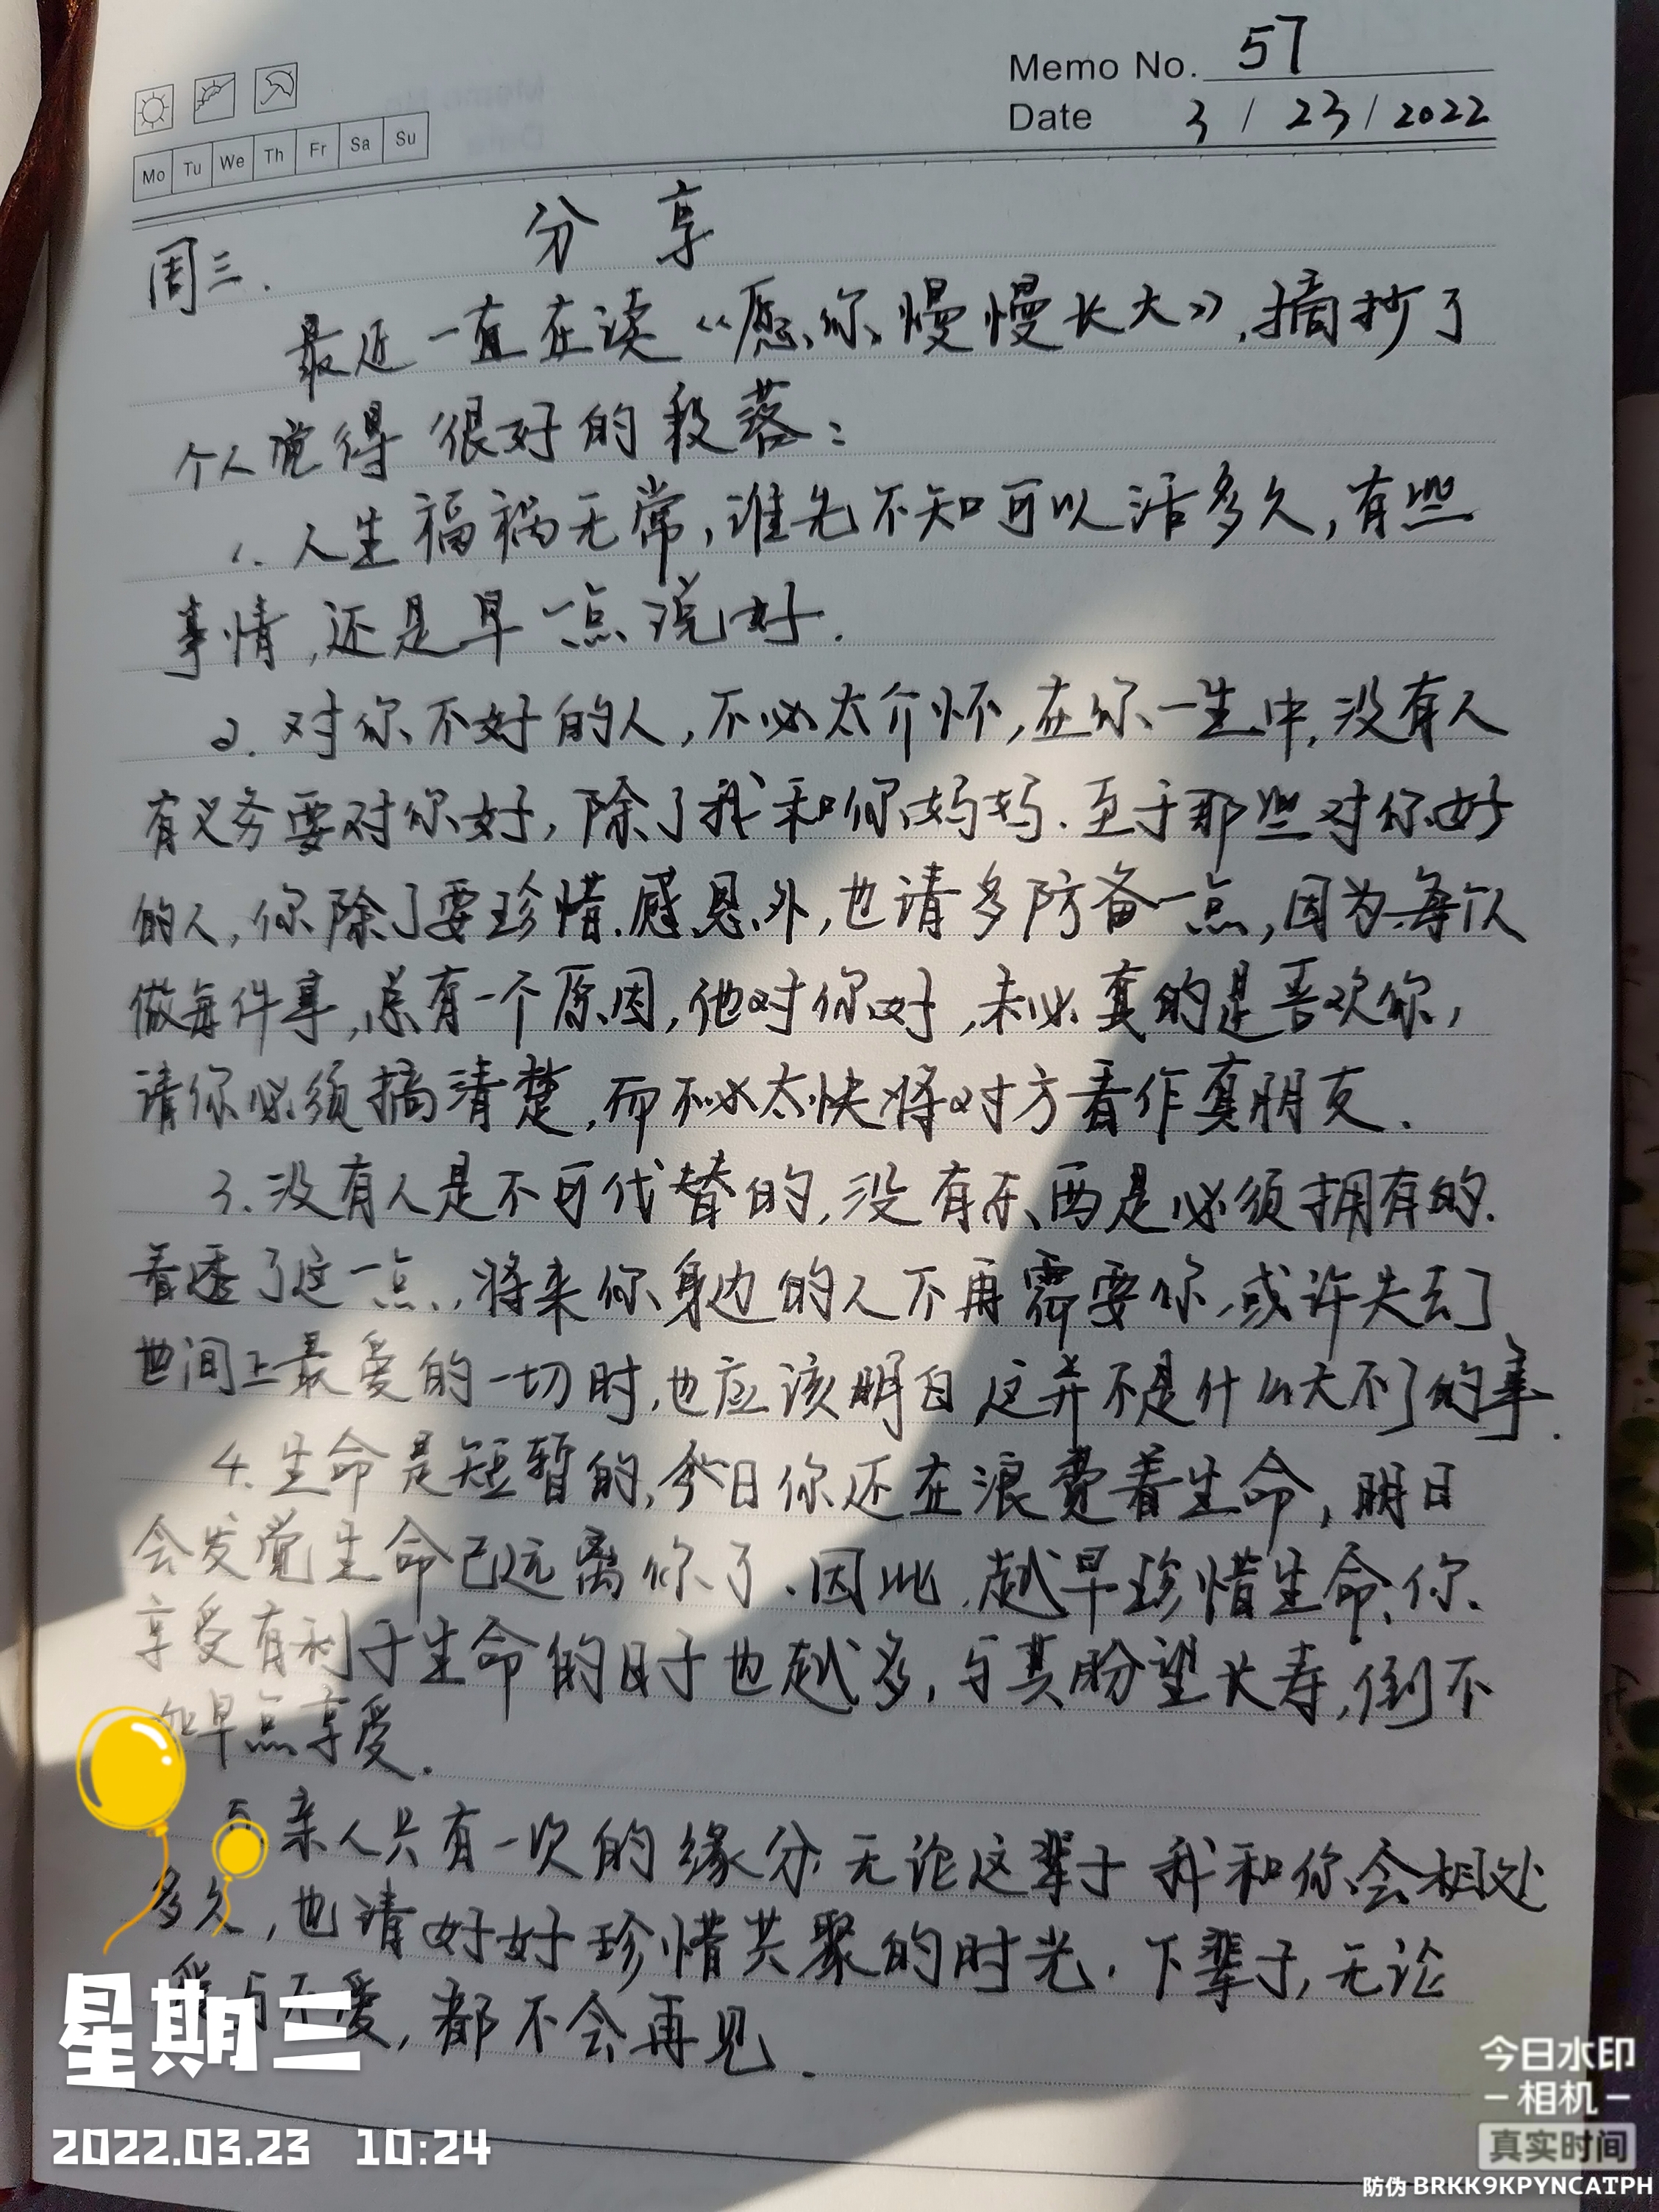 Memo No. 57
Mo Tu We Th Fr Sa Su
Date 3 / 23 / 2022
分享
周三.
最近一直在读《愿你慢慢长大》,摘抄了
个人觉得很好的段落:
1. 人生福祸无常,谁先不知可以活多久,有些
事情,还是早一点说好.
2. 对你不好的人,不必太介怀,在你一生中,没有人
有义务要对你好,除了我和你妈妈.至于那些对你好
的人,你除了要珍惜.感恩外,也请多防备一点,因为每个人
做每件事,总有一个原因,他对你好,未必真的是喜欢你,
请你必须搞清楚,而不必太快将对方看作真朋友.
3. 没有人是不可代替的,没有东西是必须拥有的.
看透了这一点,将来你身边的人不再需要你,或许失去了
世间上最爱的一切时,也应该明白这并不是什么大不了的事.
4. 生命是短暂的,今日你还在浪费着生命,明日
会发觉生命已远离你了.因此,越早珍惜生命,你
享受有利于生命的日子也越多,与其盼望长寿,倒不
如早点享受.
5. 亲人只有一次的缘分 无论这辈子我和你会相处
多久,也请好好珍惜共聚的时光.下辈子,无论
爱与不爱,都不会再见.
星期三
2022.03.23 10:24
今日水印
-相机-
真实时间
防伪 BRKK9KPYNCATPH